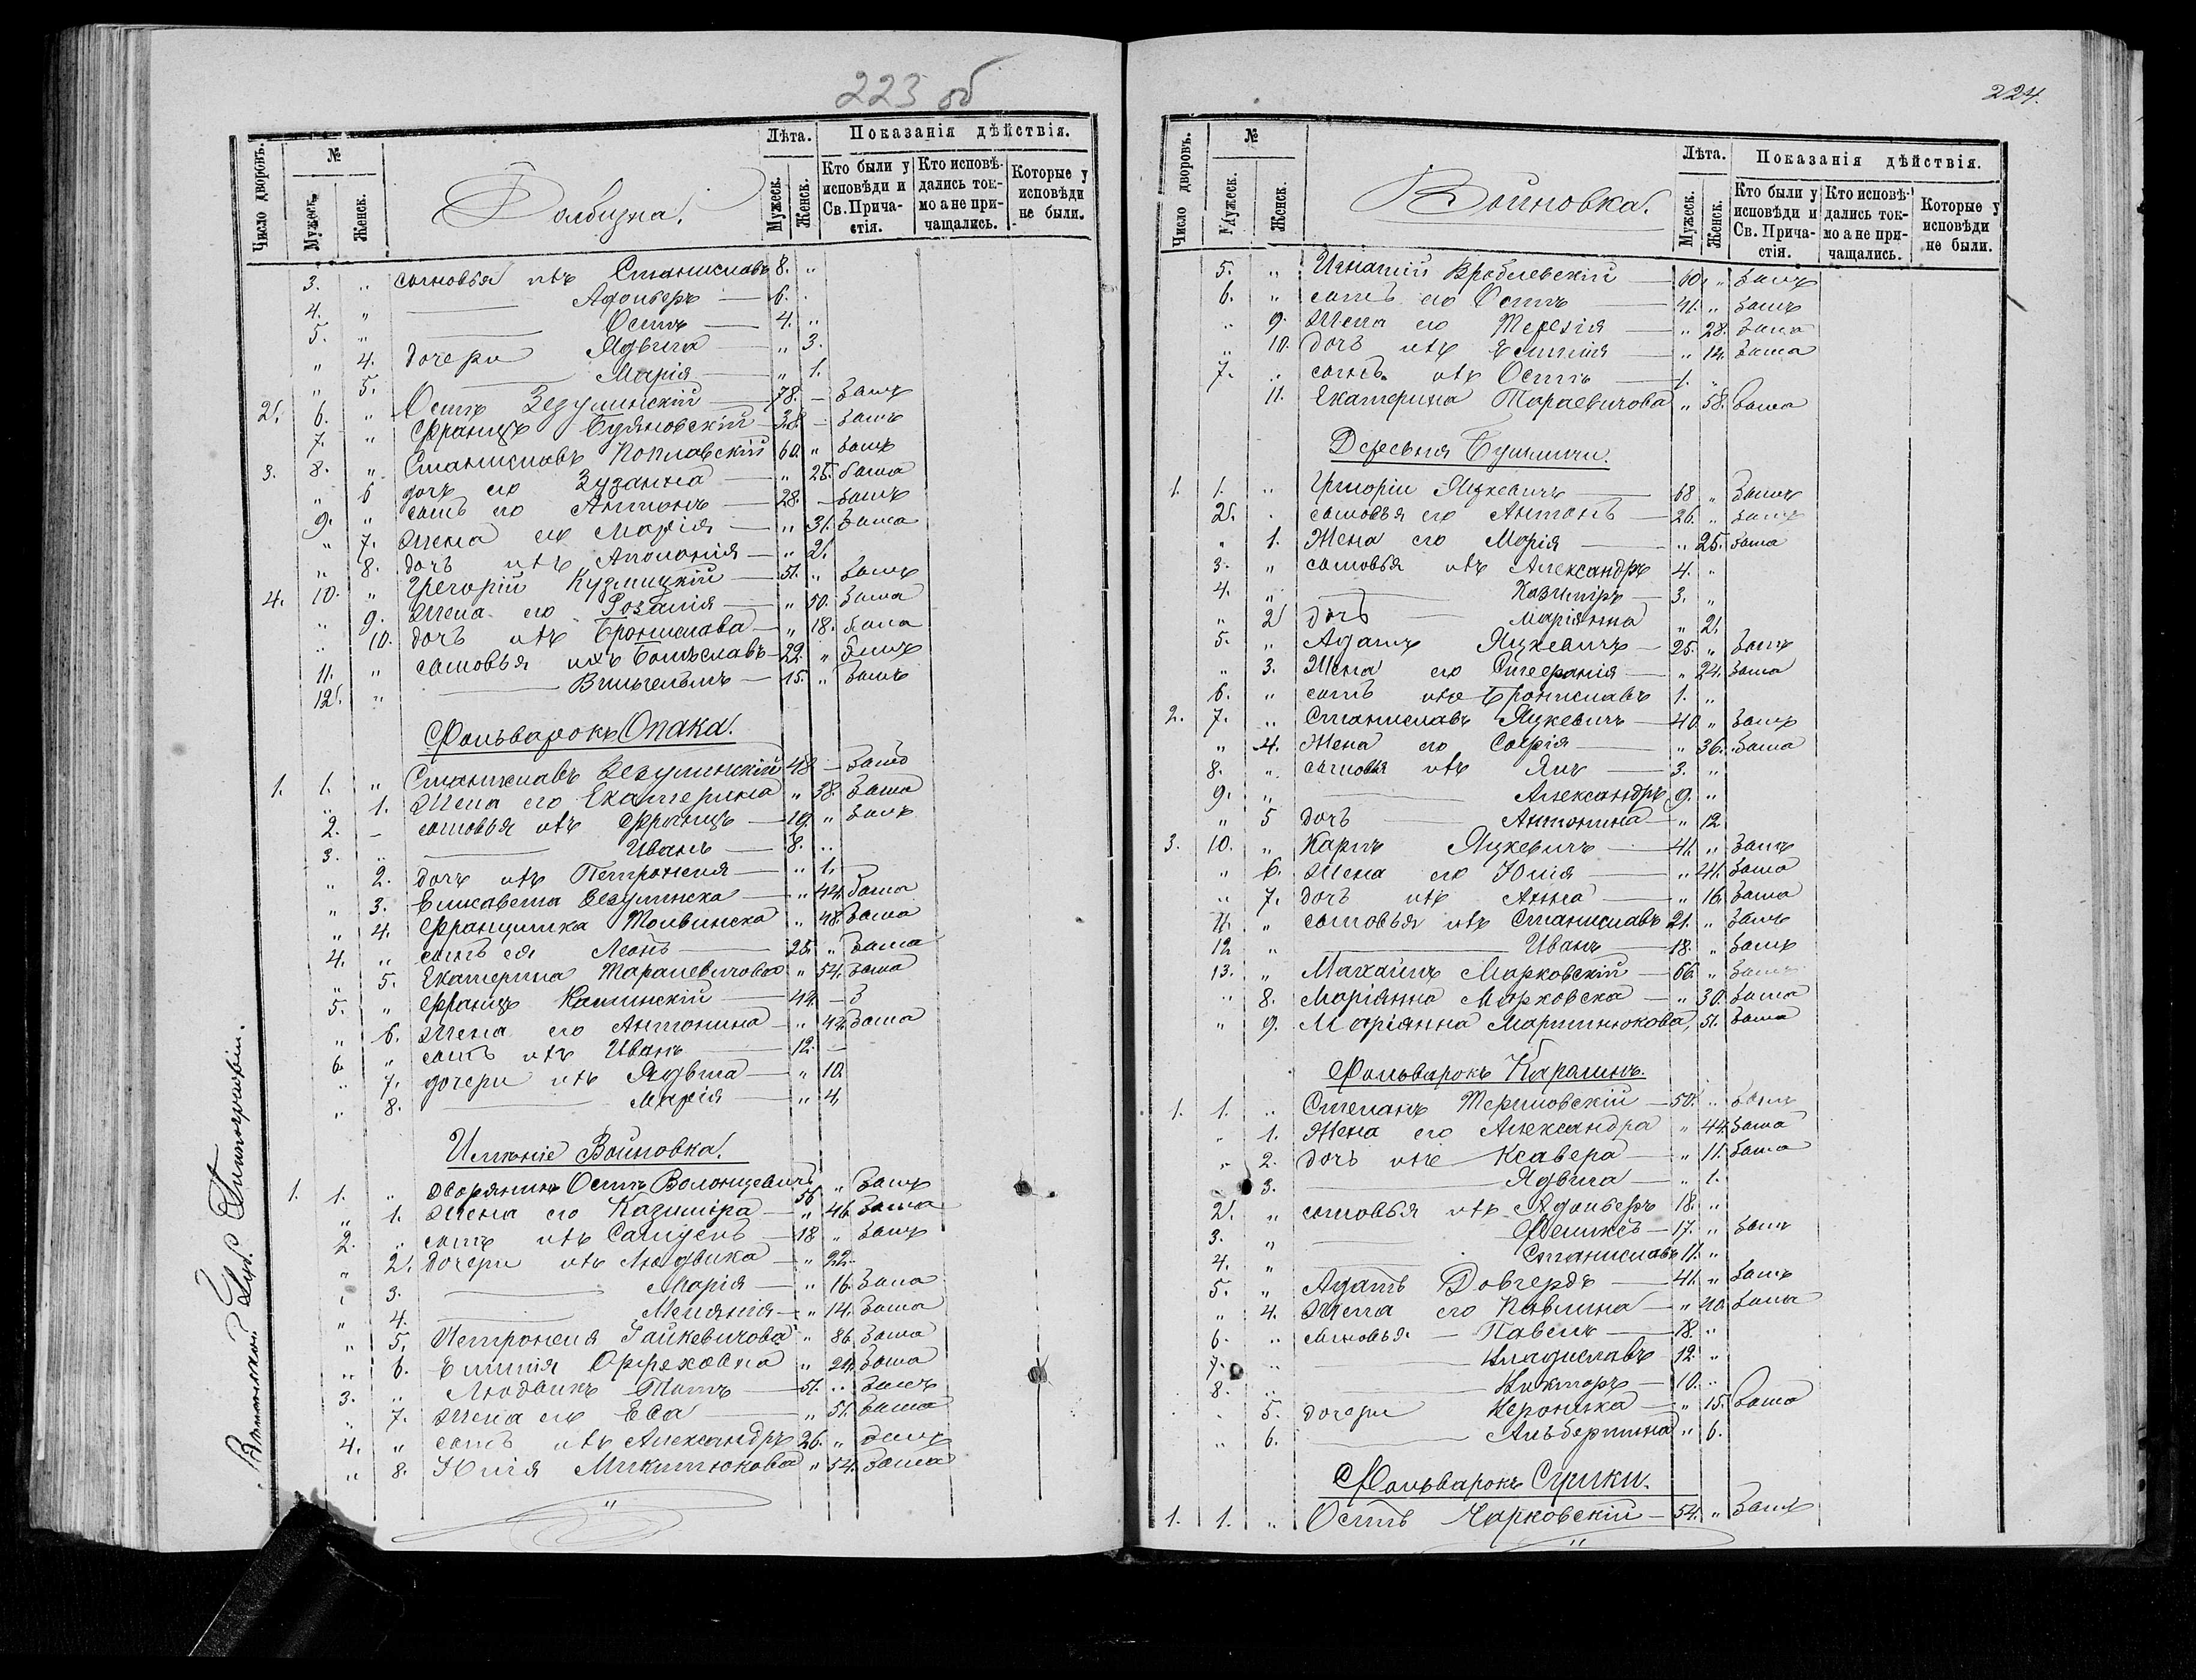 223 об
Число дворовъ.
№
Мужеск.
Женск.
Долбизна.
Лѣта.
Мужеск.
Женск.
Показанія дѣйствія.
Кто были у исповѣди и Св. Прича-стія.
Кто исповѣ-дались ток-мо а не при-чащались.
Которые у исповѣди не были.
3. " сыновья ихъ Станиславъ 8. "
4. " Адольберъ — 6.
5. " Осипъ — 4. "
" 4. дочери Ядвига — " 3.
" 5. Марія — " 1.
2. 6. " Осипъ Зезулинскій — 78. — былъ
7. " Францъ Буяновскій — 38. — былъ
3. 8. " Станиславъ Поплавскій 60. " былъ
" 6 дочь его Зузанна — " 25. была
9. " сынъ его Антонъ — 28. — былъ
" 7. Жена его Марія — " 31. была
" 8. дочь ихъ Аполонія — " 2.
4. 10. " Грегорій Кузмицкій — 51. " былъ
" 9. Жена его Розалія — " 50. была
" 10. дочь ихъ Бронислава — " 18. была
11. " сыновья ихъ Болѣславъ — 22. " былъ
12. " Вильгельмъ — 15. " былъ
Фольварокъ Опака.
1. 1. " Станиславъ Зезулинскій 48 — былъ
" 1. Жена его Екатерина " 38. была
2. — сыновья ихъ Францъ — 19. " былъ
3. " Иванъ — 8. "
" 2. дочь ихъ Петронеля — " 1.
" 3. Елисавета Зезулинска — " 44. была
" 4. Францишка Толвинска " 48. была
4. " сынъ ея Леонъ 25. " была
" 5. Екатерина Тараневичова " 54. была
5. " Францъ Калинскій — 44. — б
" 6. Жена его Антонина — " 42. была
6. " сынъ ихъ Иванъ — 12. —
" 7. дочери ихъ Ядвига — " 10.
" 8. Марія — " 4.
Имѣніе Войновка.
1. 1. " Дворянинъ Осипъ Волонцевичъ 56 " былъ
" 1. Жена его Казиміра — " 46. была
2. " сынъ ихъ Самуель — 18 " былъ
" 2. дочери ихъ Людвика — " 22.
" 3. Марія — " 16. была
" 4. Меланія — " 14. была
" 5. Петронеля Гайкевичова " 86. была
" 6. Емилія " 24. была
3. " Людвикъ — 51. " былъ
" 7. Жена его Ева — " 51. была
4. " сынъ ихъ Александръ 26. " былъ
" 8. Юлія Микитюкова " 54. была
224.
Число дворовъ.
№
Мужеск.
Женск.
Войновка.
Лѣта.
Мужеск.
Женск.
Показанія дѣйствія.
Кто были у исповѣди и Св. Прича-стія.
Кто исповѣ-дались ток-мо а не при-чащались.
Которые у исповѣди не были.
5. " Игнатій Вроблевскій — 60. " былъ
6. " сынъ его Осипъ — 41. " былъ
" 9. Жена его Терезія — " 28. была
" 10. дочь ихъ Емилія — " 12. была
7. " сынъ ихъ Осипъ — 1. "
11. Екатерина Тараевичова " 58. была
Деревня
1. 1. " Григорій Яцкевичъ — 68 " былъ
2. " сыновья его Антонъ — 26. " былъ
" 1. Жена его Марія — " 25. была
3. " сыновья ихъ Александръ 4. "
4. " Казиміръ — 3. "
" 2 дочь — Маріянна " 2.
5. " Адамъ Яцкевичъ — 25. " былъ
" 3. Жена его Стефанія — " 24. была
6. " сынъ ихъ Брониславъ 1. "
2. 7. " Станиславъ Яцкевичъ — 40. " былъ
" 4. Жена его Софія — " 36. была
8. " сыновья ихъ Янъ — 3. "
9. " Александръ 9. "
" 5 дочь Антонина — " 12
3. 10. " Карлъ Яцкевичъ — 41. " былъ
" 6. Жена его Юлія — " 41. была
" 7. дочь ихъ Анна — " 16. была
11. " сыновья ихъ Станиславъ 21. " былъ
12 " Иванъ — 18. " былъ
13. " Михаилъ Марковскій — 66. " былъ
" 8. Маріянна Марковска — " 30. была
" 9. Маріянна Мартинюкова, 51. была
Фольварокъ Каралинъ.
1. 1. " Степанъ Терпиловскій — 50. " былъ
" 1. Жена его Александра " 44. была
" 2. дочь ихъ Ксавера — " 11. была
" 3. Ядвига — " 1.
2. " сыновья ихъ Адольберъ 18. "
3. " Феликсъ — 17. " былъ
4. " Станиславъ 11. "
5. " Адамъ Довгердъ — 41. " былъ
" 4. Жена его Павлина — " 40. была
6. " сыновья — Павелъ — 18. "
7. " Владиславъ 12. "
8. " Викторъ — 10. "
" 5. дочери Вероника — " 15. была
" 6. Альбертина " 6.
Фольварокъ Сушки.
1. 1. " Осипъ Чарковскій — 54. " былъ